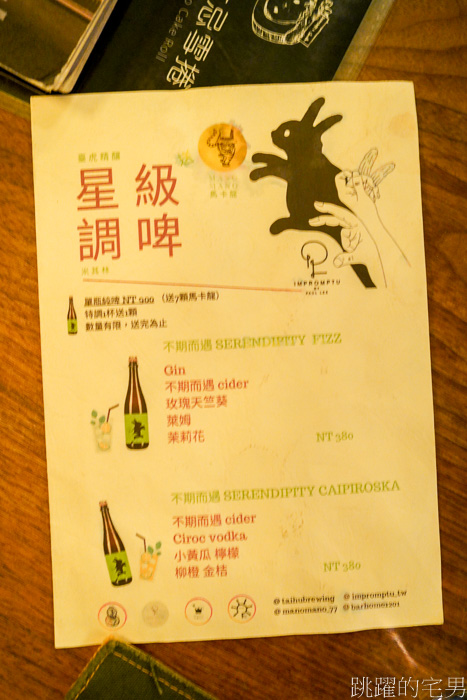 忌雪捲
Cake Roll
臺虎精釀
星級
調啤
米其林
馬卡龍
IMPROMPTU
BY
PAUL LEE
單瓶純啤 NT 900 （送7顆馬卡龍）
特調1杯送1顆
數量有限，送完為止
不期而遇 SERENDIPITY FIZZ
Gin
不期而遇 cider
玫瑰天竺葵
萊姆
茉莉花
NT 380
不期而遇 SERENDIPITY CAIPIROSKA
不期而遇 cider
Ciroc vodka
小黃瓜 檸檬
柳橙 金桔
NT 380
@ taihubrewing @ impromptu_tw
@ manomano_77 @ barhome1201
跳躍的宅男